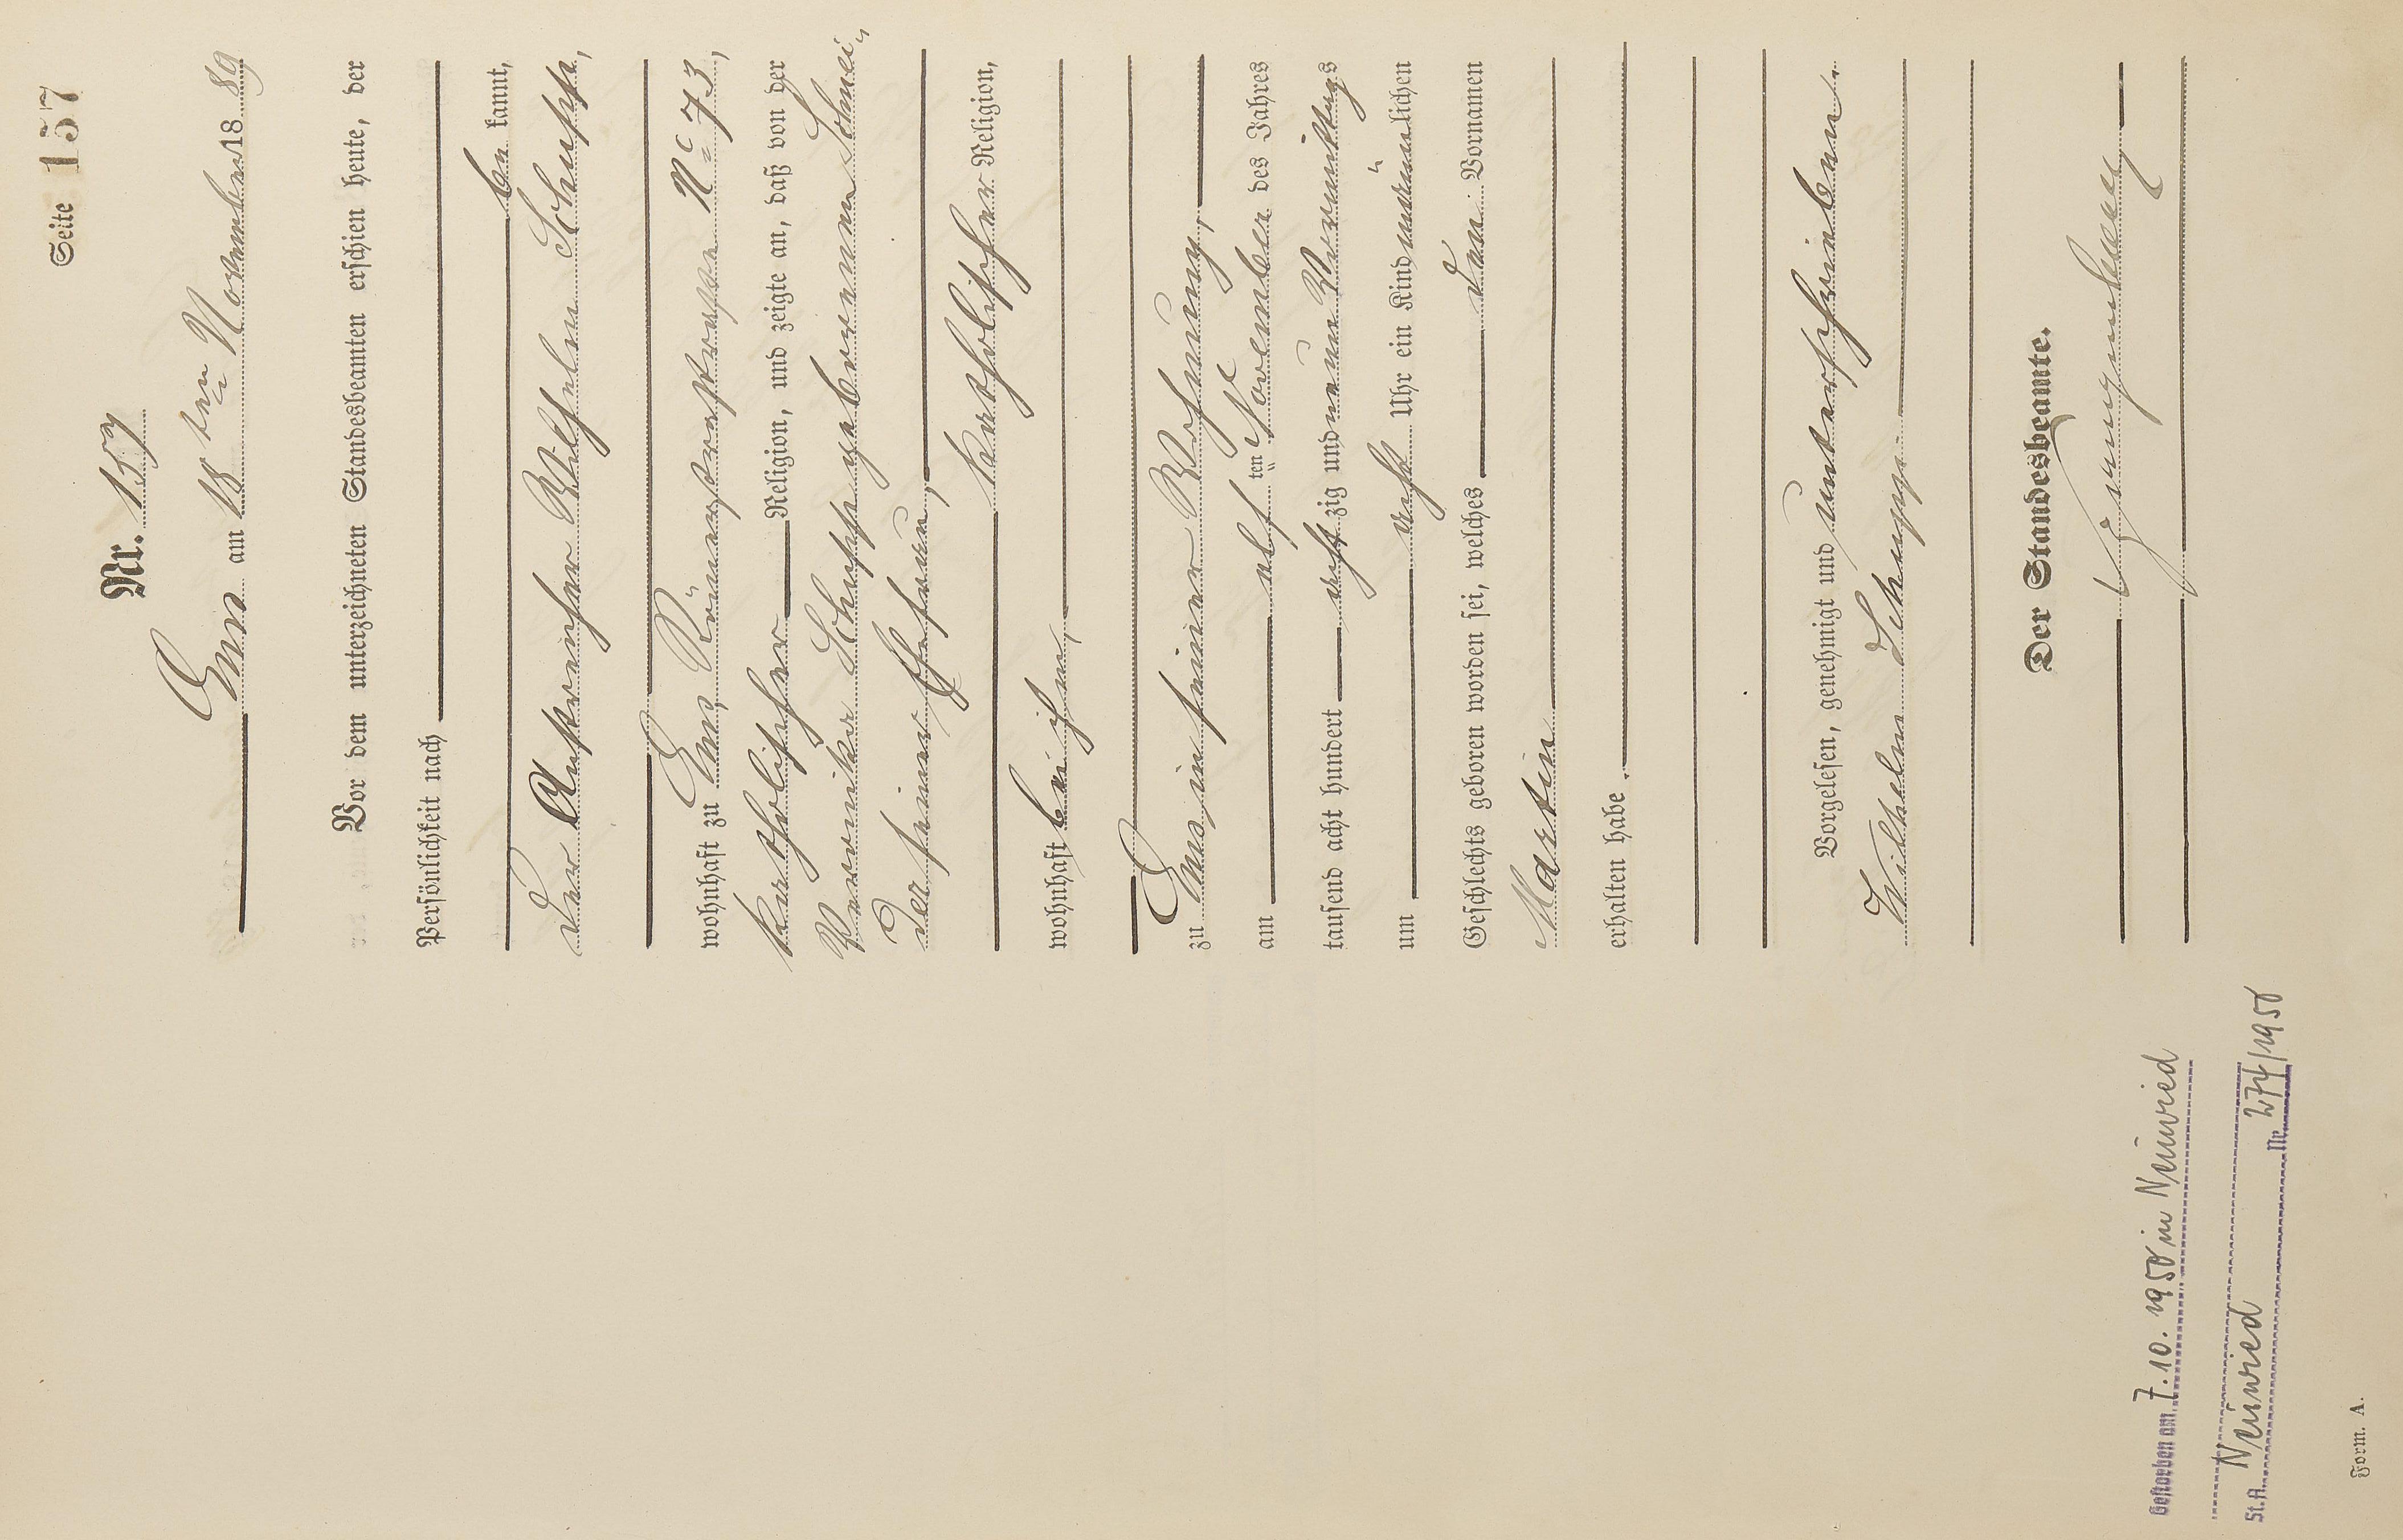 Seite 157
Nr. 157
Ems am 18 ten November 18 89
Vor dem unterzeichneten Standesbeamten erschien heute, der
Persönlichkeit nach
be kannt,
der Anstreicher Wilhelm Schupp,
wohnhaft zu Ems, Römerstrasse No 73,
katholischer Religion, und zeigte an, daß von der
Veronika Schupp geborenen Schmei„
der seiner Ehefrau,
katholischer Religion,
wohnhaft bei ihm,
zu Ems in seiner Wohnung,
am elf ten November des Jahres
tausend acht hundert acht zig und neun Vormittags
um acht Uhr ein Kind männlichen
Geschlechts geboren worden sei, welches den Vornamen
Martin
erhalten habe.
Vorgelesen, genehmigt und unterschrieben.
Wilhelm Schupp.
Der Standesbeamte.
Gestorben am 7.10.1958 in Neuwied
St.A. Neuwied Nr. 274/1958
Form. A.